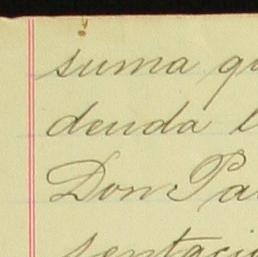 suma qu
deuda l
Don Pa
sentació